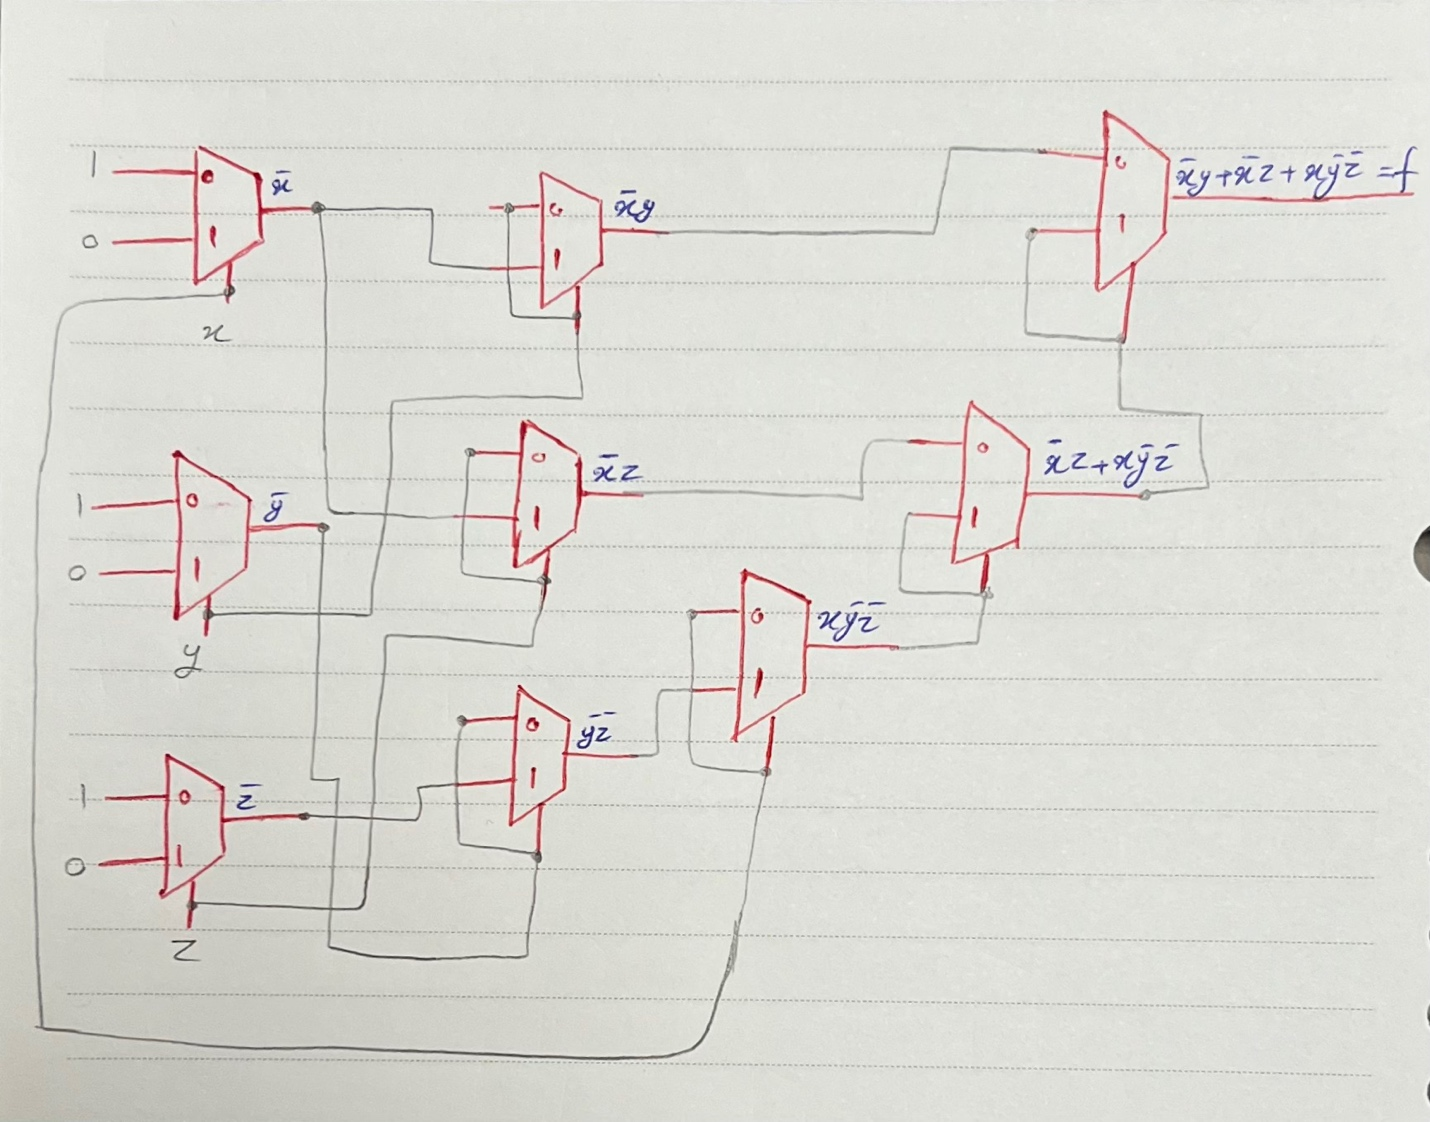 1
0
0
1
x̄
x
0
1
x̄y
0
1
x̄y + x̄z + xȳz̄ = f
1
0
0
1
ȳ
y
0
1
x̄z
0
1
x̄z + xȳz̄
0
1
xȳz̄
1
0
0
1
z̄
z
0
1
ȳz̄